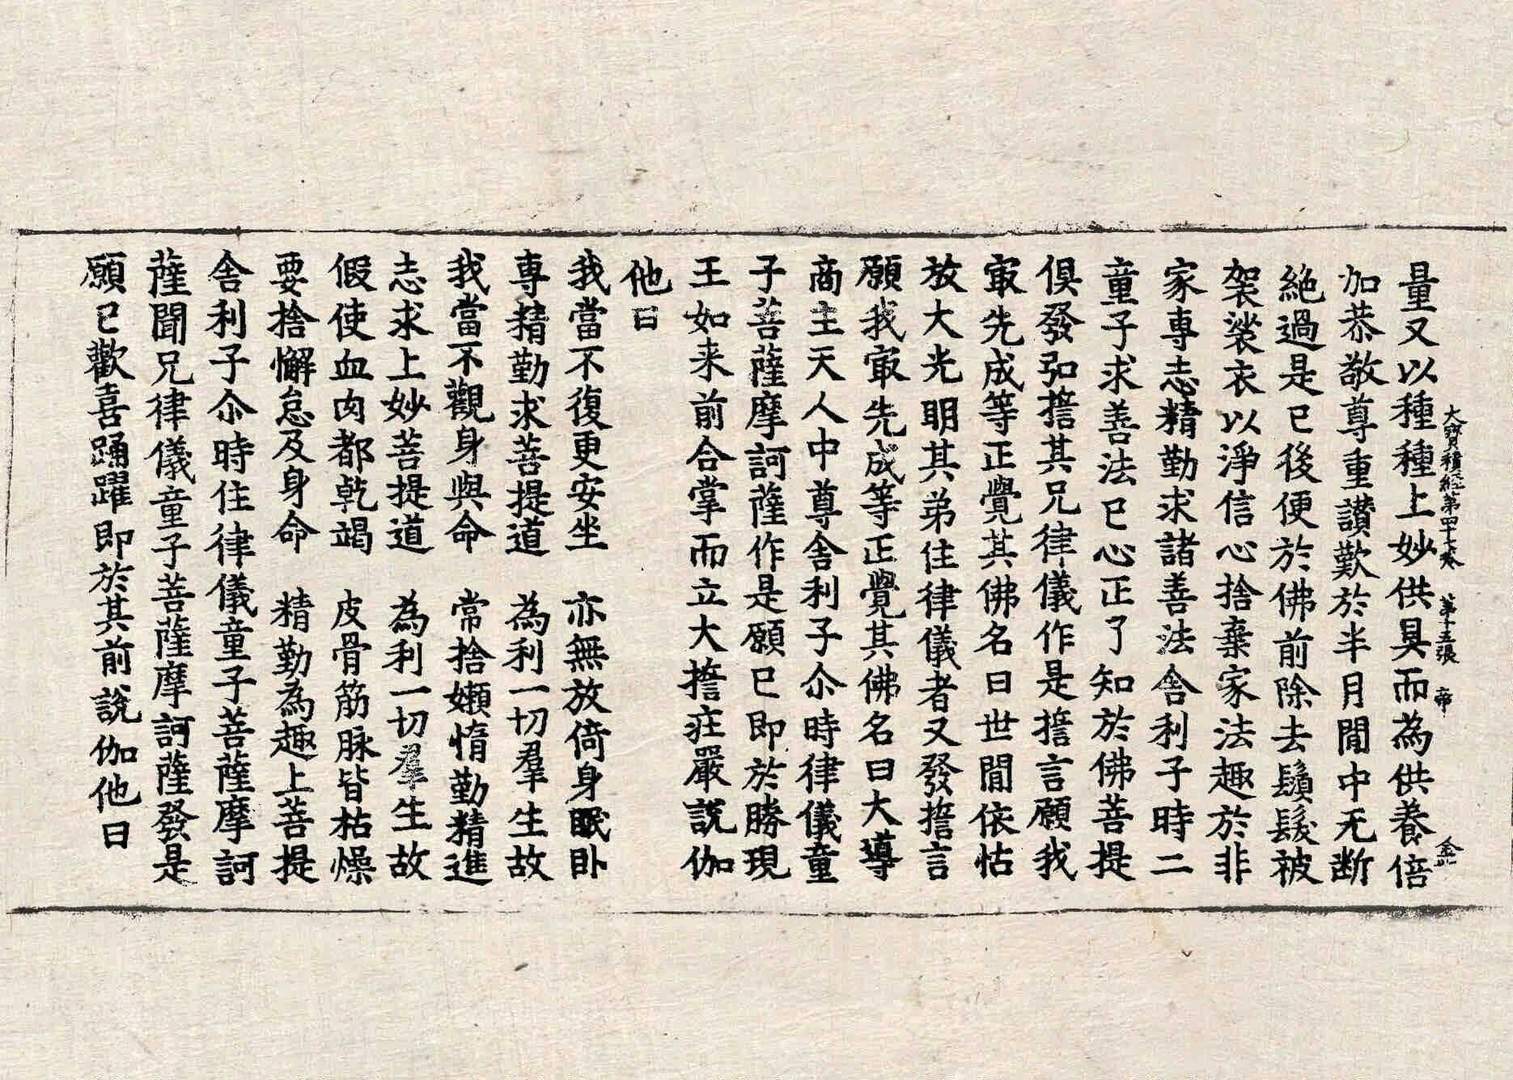 大寶積經第四十七卷 第十五張 帝
量又以種種上妙供具而為供養倍
加恭敬尊重讃歎於半月閒中无断
絶過是已後便於佛前除去鬚髮被
袈裟衣以淨信心捨棄家法趣於非
家専志精勤求諸善法舎利子時二
童子求善法已心正了知於佛菩提
俱發弘擔其兄律儀作是擔言願我
㝡先成等正覺其佛名曰世閒依怙
放大光明其弟住律儀者又發擔言
願我㝡先成等正覺其佛名曰大導
商主天人中尊舎利子尒時律儀童
子菩薩摩訶薩作是願已即於勝現
王如来前合掌而立大擔莊嚴說伽
他曰
我當不復更安坐　亦無放倚身眠卧
専精勤求菩提道　為利一切羣生故
我當不觀身與命　常捨嬾惰勤精進
志求上妙菩提道　為利一切羣生故
假使血肉都乾竭　皮骨筋脉皆枯燥
要捨懈怠及身命　精勤為趣上菩提
舎利子尒時住律儀童子菩薩摩訶
薩聞兄律儀童子菩薩摩訶薩發是
願已歡喜踊躍即於其前說伽他曰